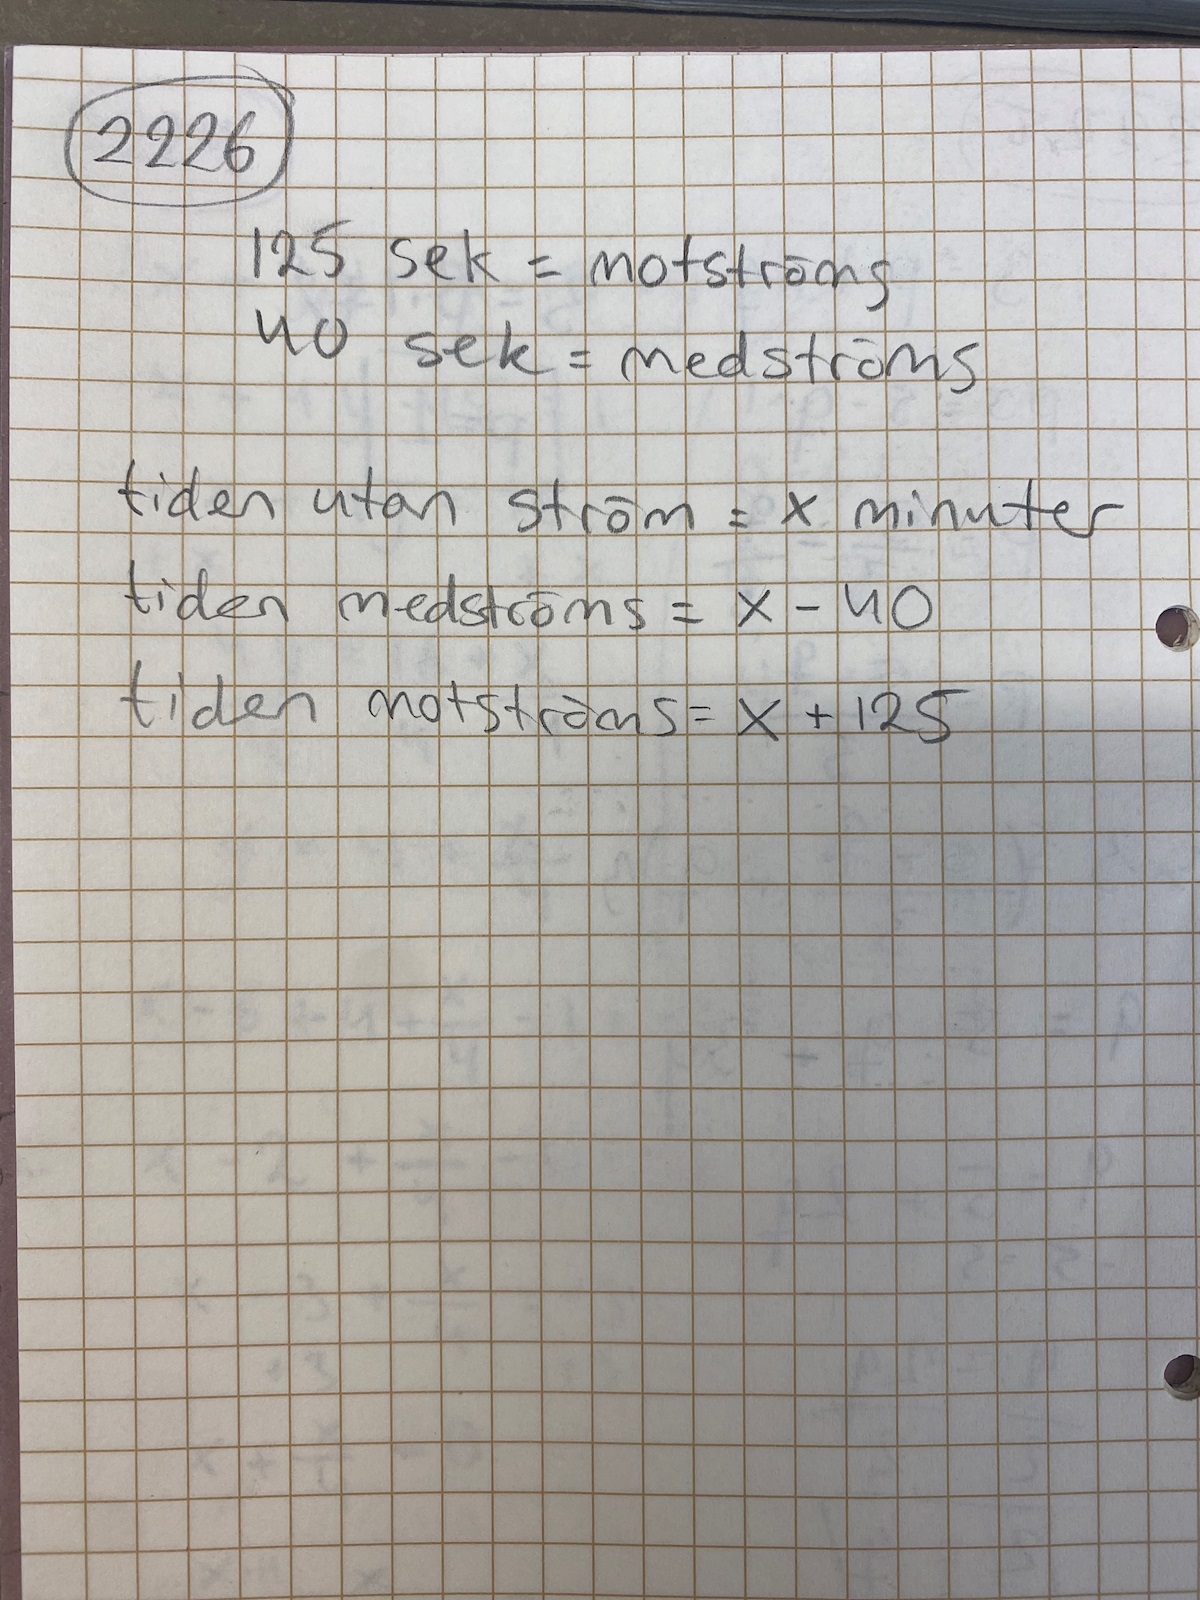 2226
125 sek = motströms
40 sek = medströms
tiden utan ström = x minuter
tiden medströms = x - 40
tiden motströms = x + 125